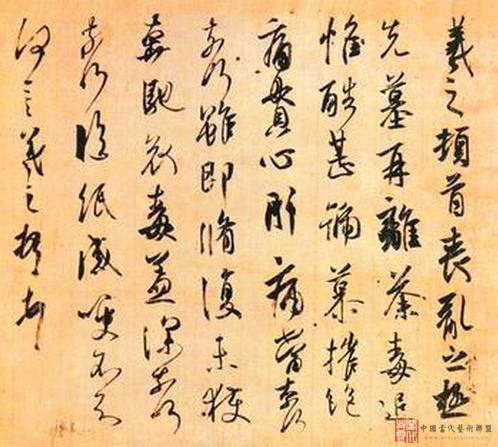 羲之頓首喪亂之極
先墓再離荼毒追
惟酷甚號慕摧絕
痛貫心肝痛當奈何
奈何雖即脩復未獲
奔馳哀毒益深奈何
奈何臨紙感哽不知
何言羲之頓首頓首
中國當代藝術聯盟